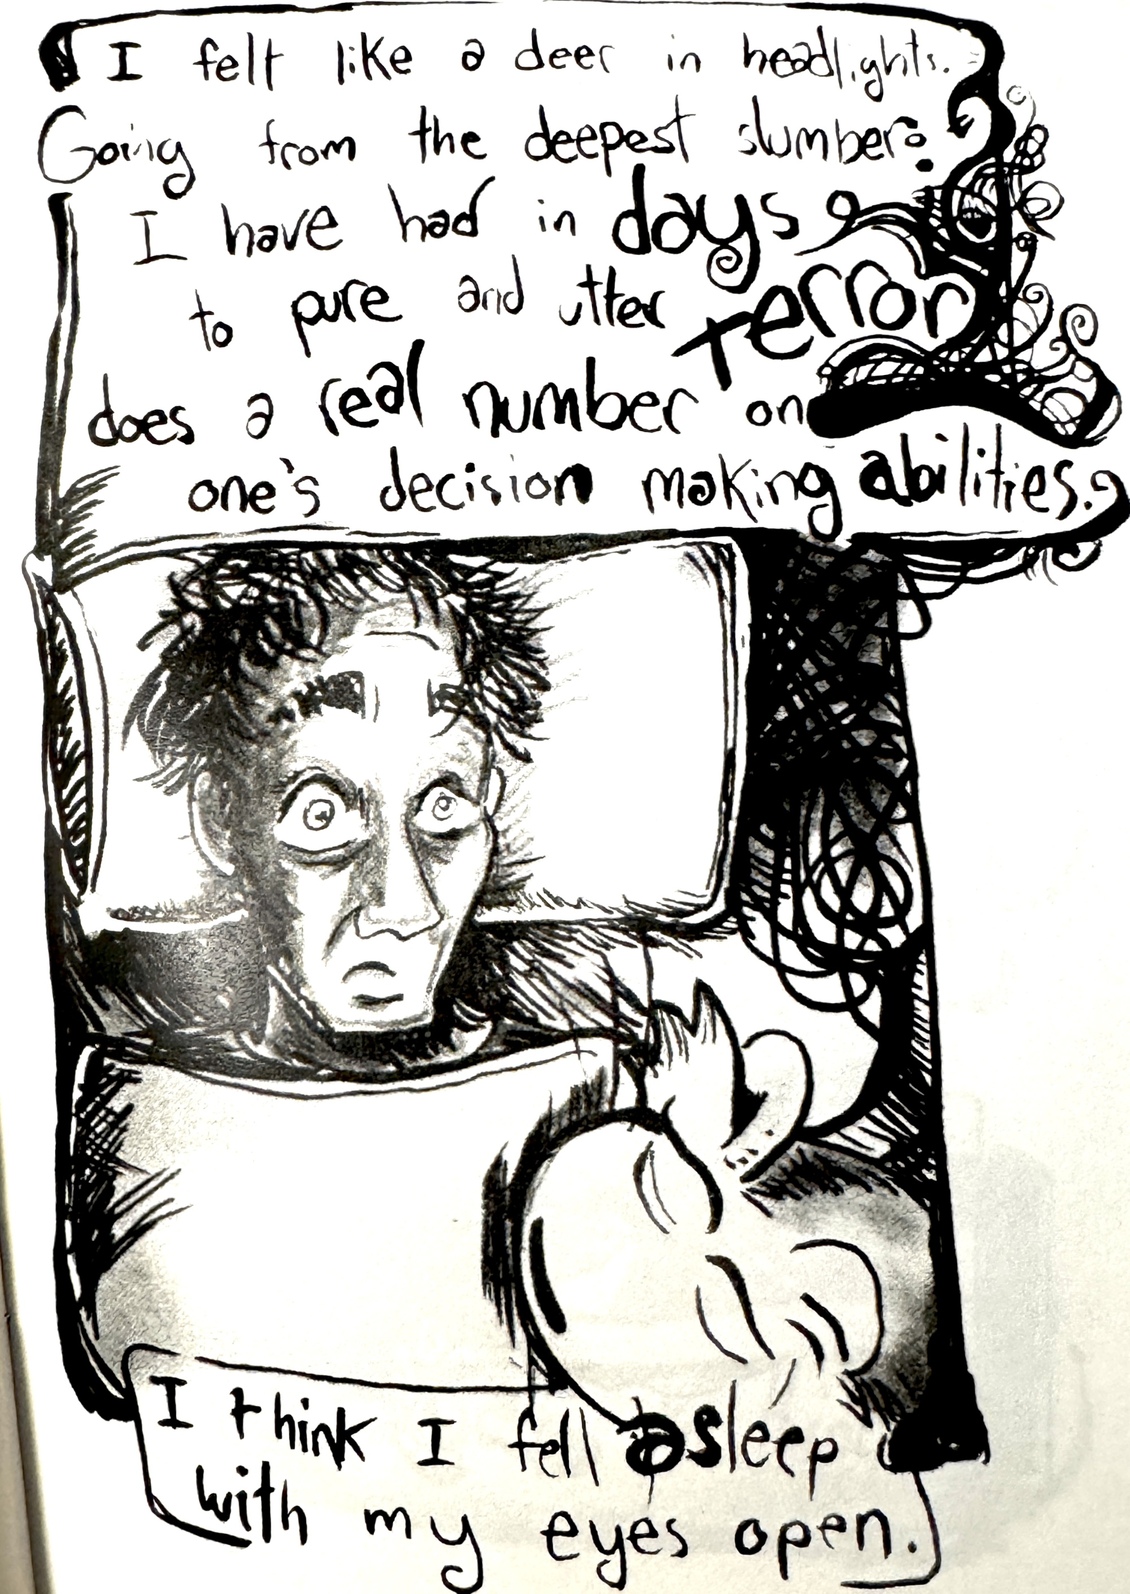 I felt like a deer in headlights.
Going from the deepest slumber
I have had in days
to pure and utter terror
does a real number on
one's decision making abilities.
I think I fell asleep
with my eyes open.